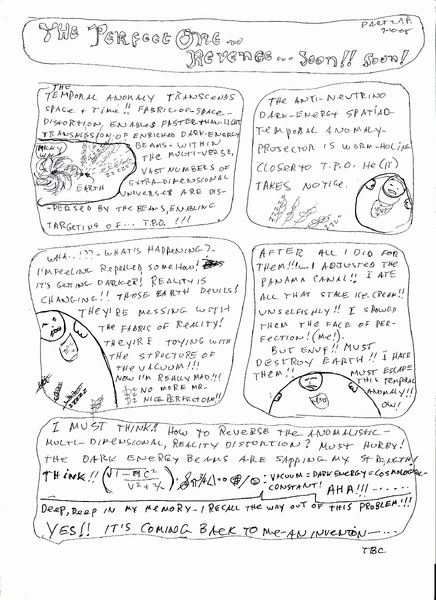 THE PERFECT ONE...
REVENGE... SOON!! SOON!
THE
TEMPORAL ANOMALY TRANSCENDS
SPACE + TIME!! FABRIC-OF-SPACE-
DISTORTION, ENABLES FASTER-THAN-LIGHT
TRANSMISSION OF ENRICHED DARK-ENERGY
BEAMS. WITHIN
THE MULTI-VERSE,
VAST NUMBERS OF
EXTRA-DIMENSIONAL
UNIVERSES ARE DIS-
PERSED BY THE BEAMS, ENABLING
TARGETING OF... T.P.O. !!!
MILKY
WAY
EARTH
THE ANTI-NEUTRINO
DARK-ENERGY SPATIAL-
TEMPORAL ANOMALY-
PROSECTOR IS WORM-HOLING
CLOSER TO T.P.O. HE (IT)
TAKES NOTICE.
WHA...!?? - WHAT'S HAPPENING?-
I'M FEELING REPELLED SOMEHOW!
IT'S GETTING DARKER! REALITY IS
CHANGING!! THOSE EARTH DEVILS!
THEY'RE MESSING WITH
THE FABRIC OF REALITY!
THEY'RE TOYING WITH
THE STRUCTURE OF
THE VACUUM!!!
NOW I'M REALLY MAD!!!
NO MORE MR.
NICE PERFECTION!!
AFTER ALL I DID FOR
THEM!!!... I ADJUSTED THE
PANAMA CANAL!! I ATE
ALL THAT STALE ICE CREAM!!
UNSELFISHLY!! I SHOWED
THEM THE FACE OF PER-
FECTION! (ME!).
BUT ENUF!! MUST
DESTROY EARTH!! I HATE
THEM!!
MUST ESCAPE
THIS TEMPORAL
ANOMALY!!
OW!
I MUST THINK!! HOW TO REVERSE THE ANOMALISTIC-
MULTI-DIMENSIONAL, REALITY DISTORTION? MUST HURRY!
THE DARK ENERGY BEAMS ARE SAPPING MY STRENGTH!
THINK!! : VACUUM = DARK ENERGY = COSMOLOGIC-
CONSTANT! AHA!!! -.....
DEEP, DEEP IN MY MEMORY - I RECALL THE WAY OUT OF THIS PROBLEM!!!
YES!! IT'S COMING BACK TO ME - AN INVENTION -...
TBC